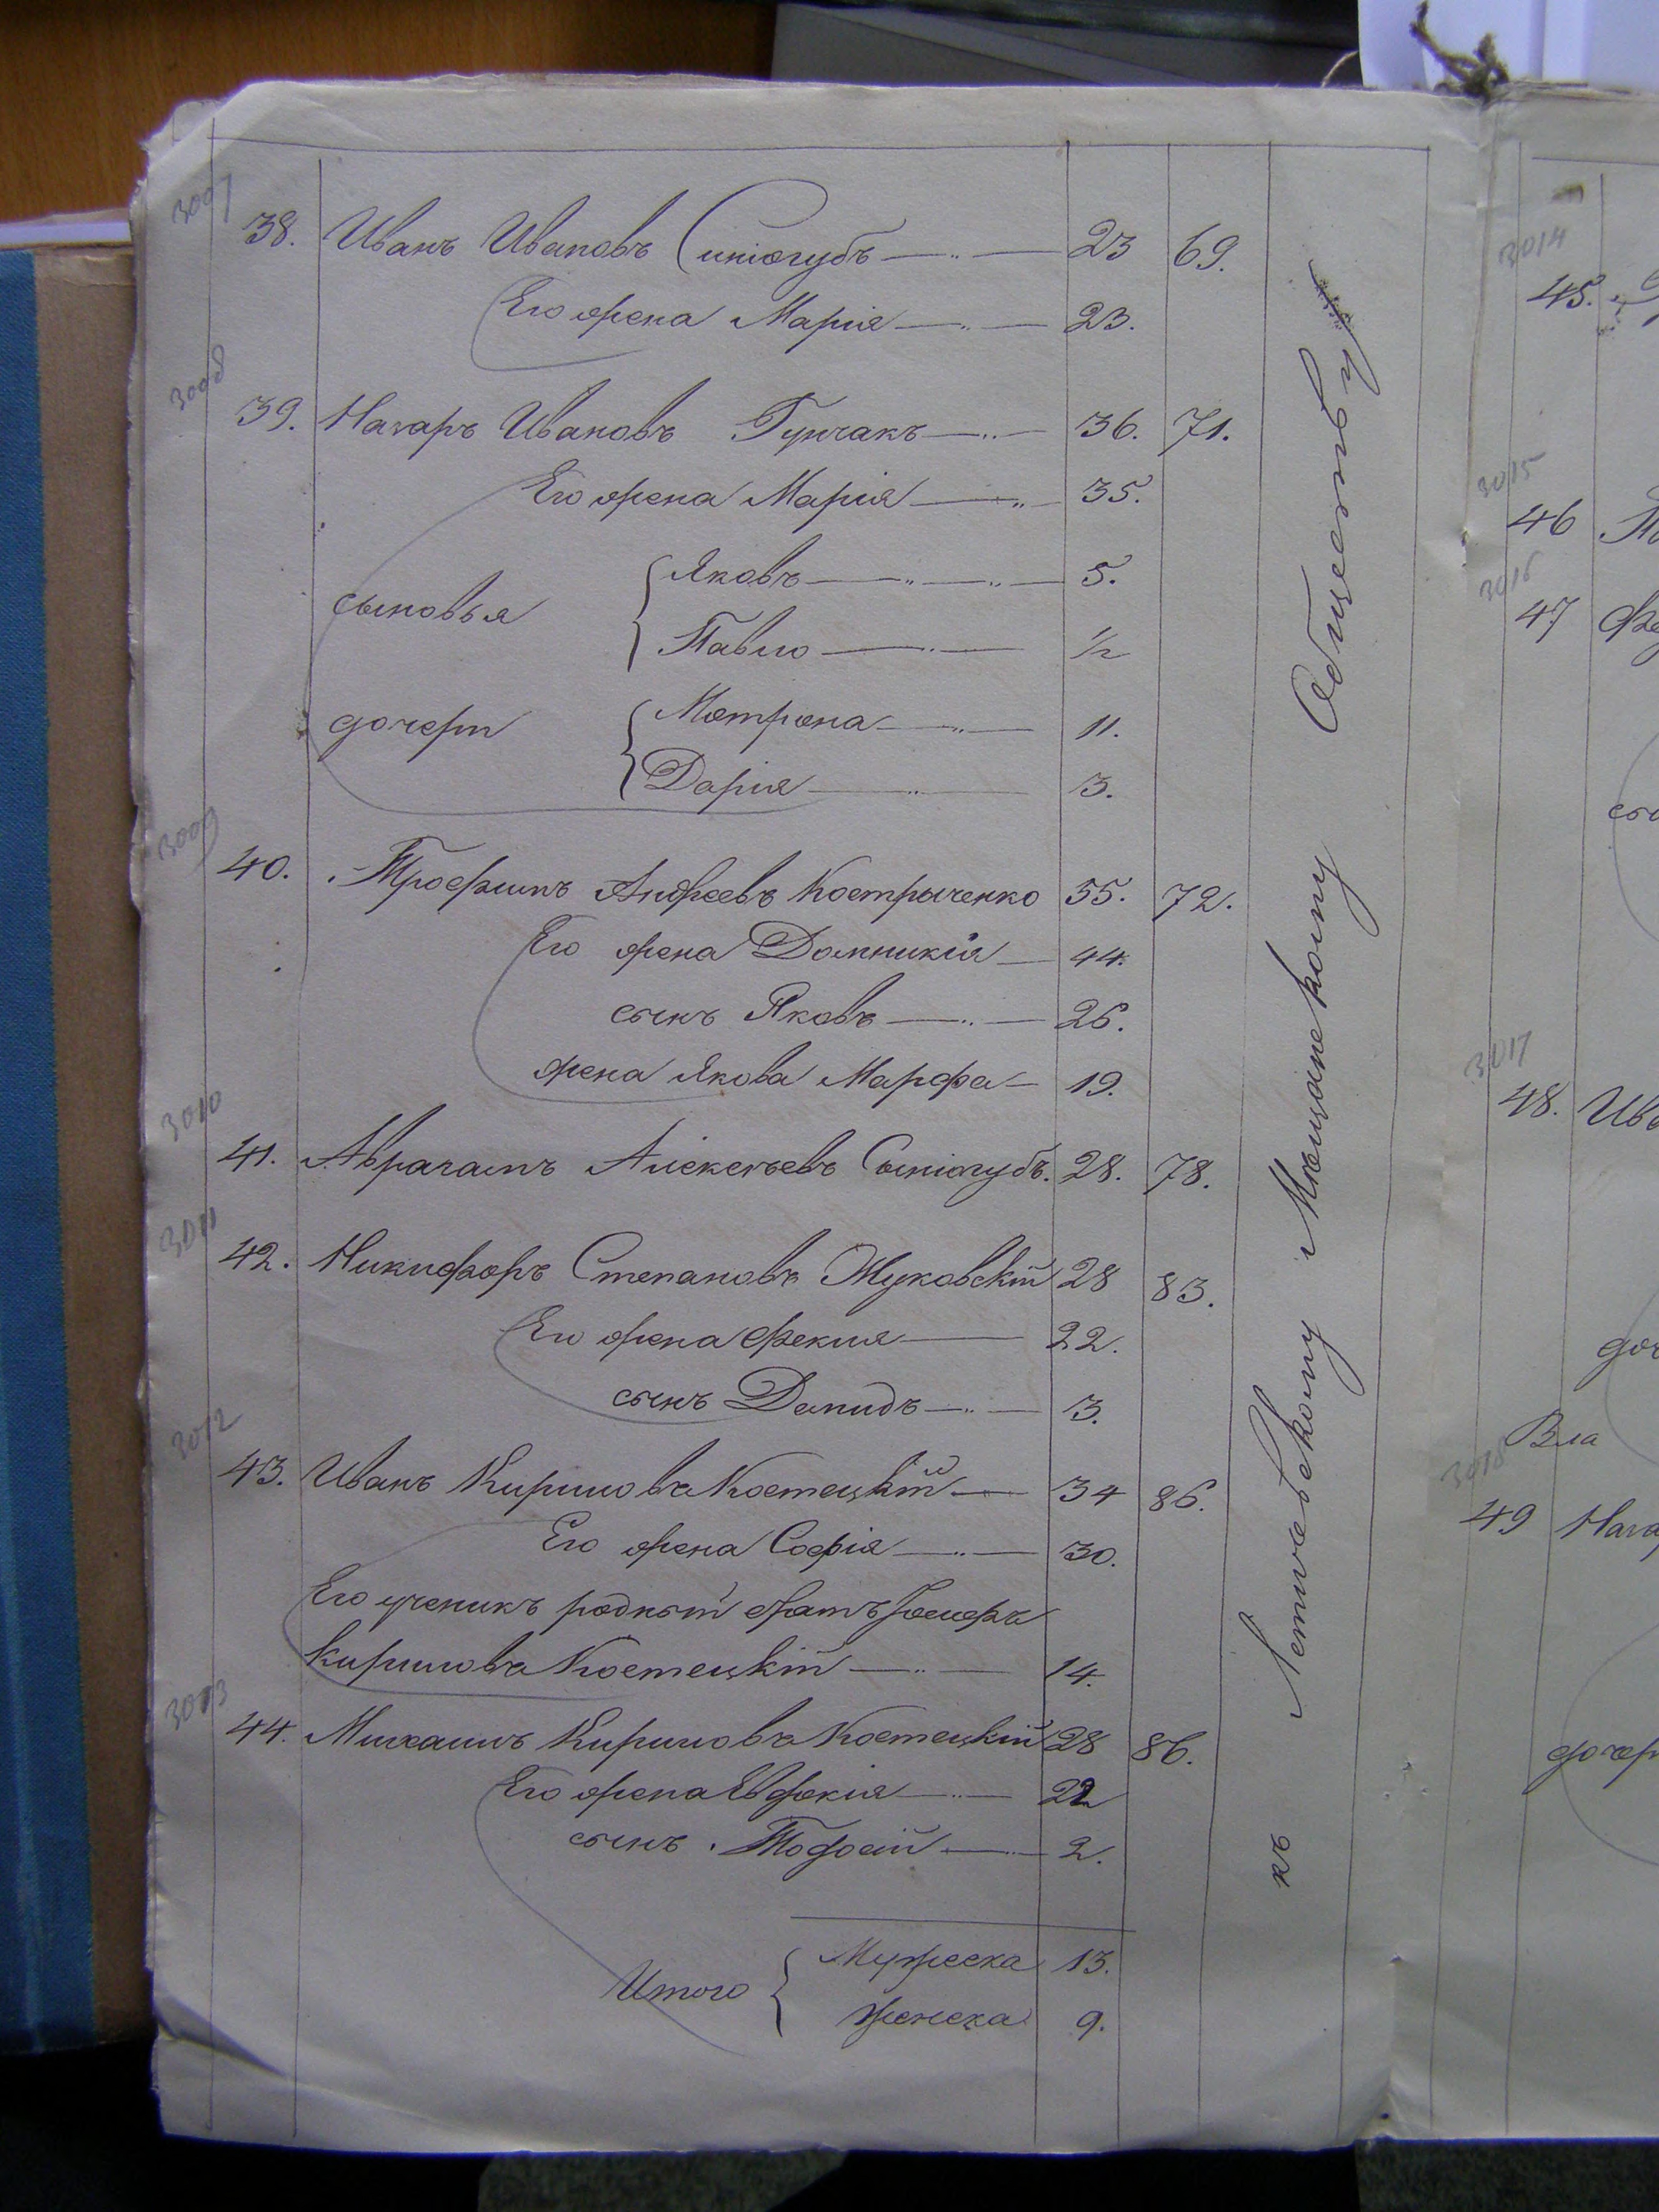 3007
38. Иванъ Ивановъ Синіогубъ 23 69.
Его жена Марія 23.
3008
39. Назаръ Ивановъ Гунчакъ 36. 71.
Его жена Марія 35.
сыновья Яковъ 5.
Павло 1/2
дочери Мотрона 11.
Дарія 3.
3009
40. Трофимъ Андреевъ Костриченко 55. 72.
Его жена Домникія 44.
сынъ Яковъ 26.
жена Якова Марфа 19.
3010
41. Аврагамъ Алексѣевъ Сыніогубъ. 28. 78.
3011
42. Никифоръ Степановъ Жуковскій 28 83.
Его жена Фекла 22.
сынъ Демидъ 3.
3012
43. Иванъ Кириловъ Костецкій 34 86.
Его жена Софія 30.
Его ученикъ родный братъ Іосифъ
Кириловъ Костецкій 14.
3013
44. Михаилъ Кириловъ Костецкій 28 86.
Его жена Евдокія 22
сынъ Тодосій 2.
Итого Мужеска 13.
Женска 9.
къ Летичевскому Мѣщанскому Обществу
3014
45.
3015
46
3016
47
3017
48. Ива
Вла
3018
49 Наза
дочер